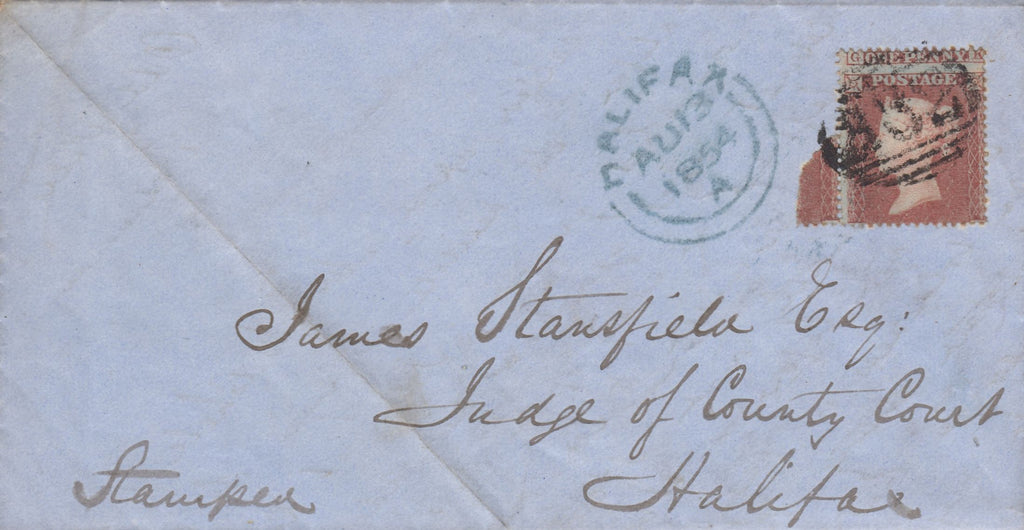 ONE PENNY
POSTAGE
HALIFAX
AU 13
1854
A
James Stansfield Esq:
Judge of County Court
Halifax
Stamped